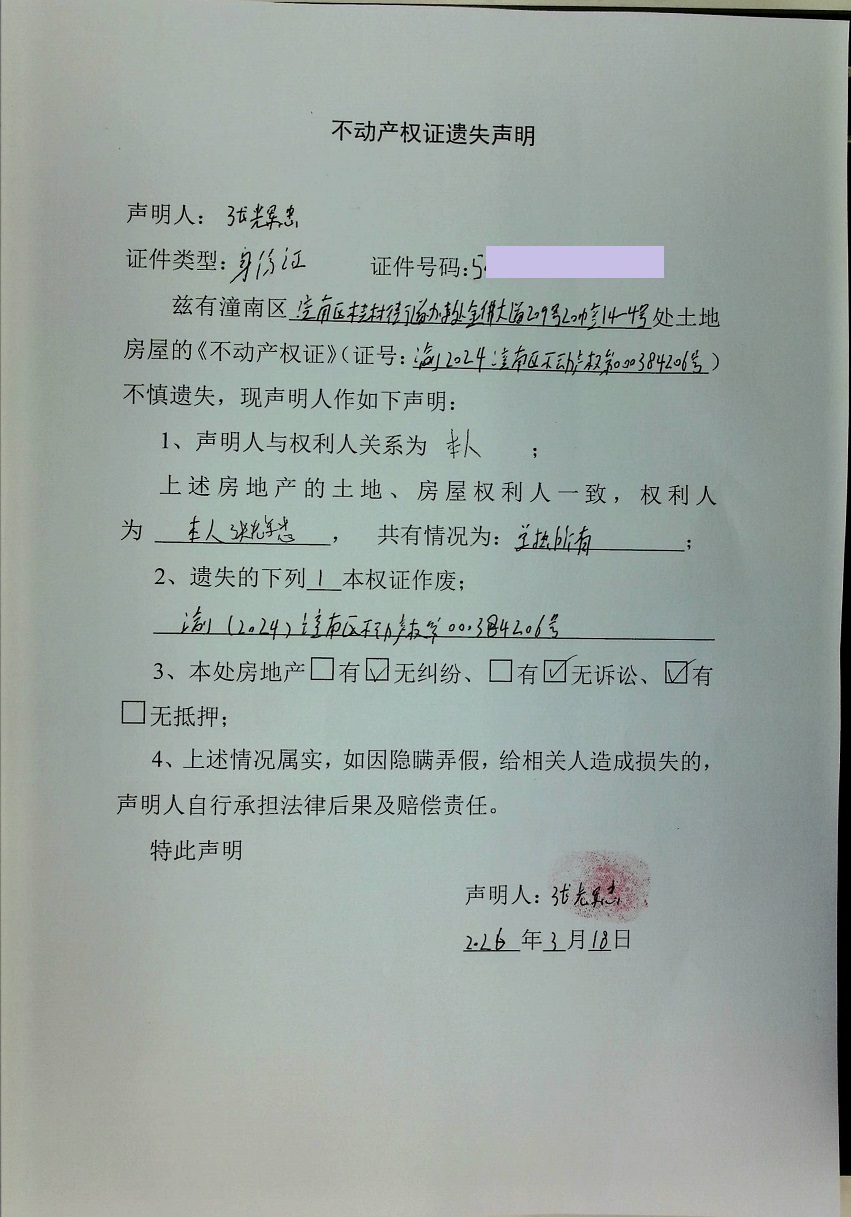 不动产权证遗失声明
声明人：张光果忠
证件类型：身份证 证件号码：5
兹有潼南区 潼南区桂林街道办事处金佛大道209号20幢14-4号处土地
房屋的《不动产权证》（证号：渝2024潼南区不动产权第000384206号）
不慎遗失，现声明人作如下声明：
1、声明人与权利人关系为 本人 ；
上述房地产的土地、房屋权利人一致，权利人
为 本人 ， 共有情况为：单独所有；
2、遗失的下列 1 本权证作废；
渝（2024）潼南区不动产权第000384206号
3、本处房地产□有☑无纠纷、□有☑无诉讼、☑有
□无抵押；
4、上述情况属实，如因隐瞒弄假，给相关人造成损失的，
声明人自行承担法律后果及赔偿责任。
特此声明
声明人：张光果忠
2026年3月18日